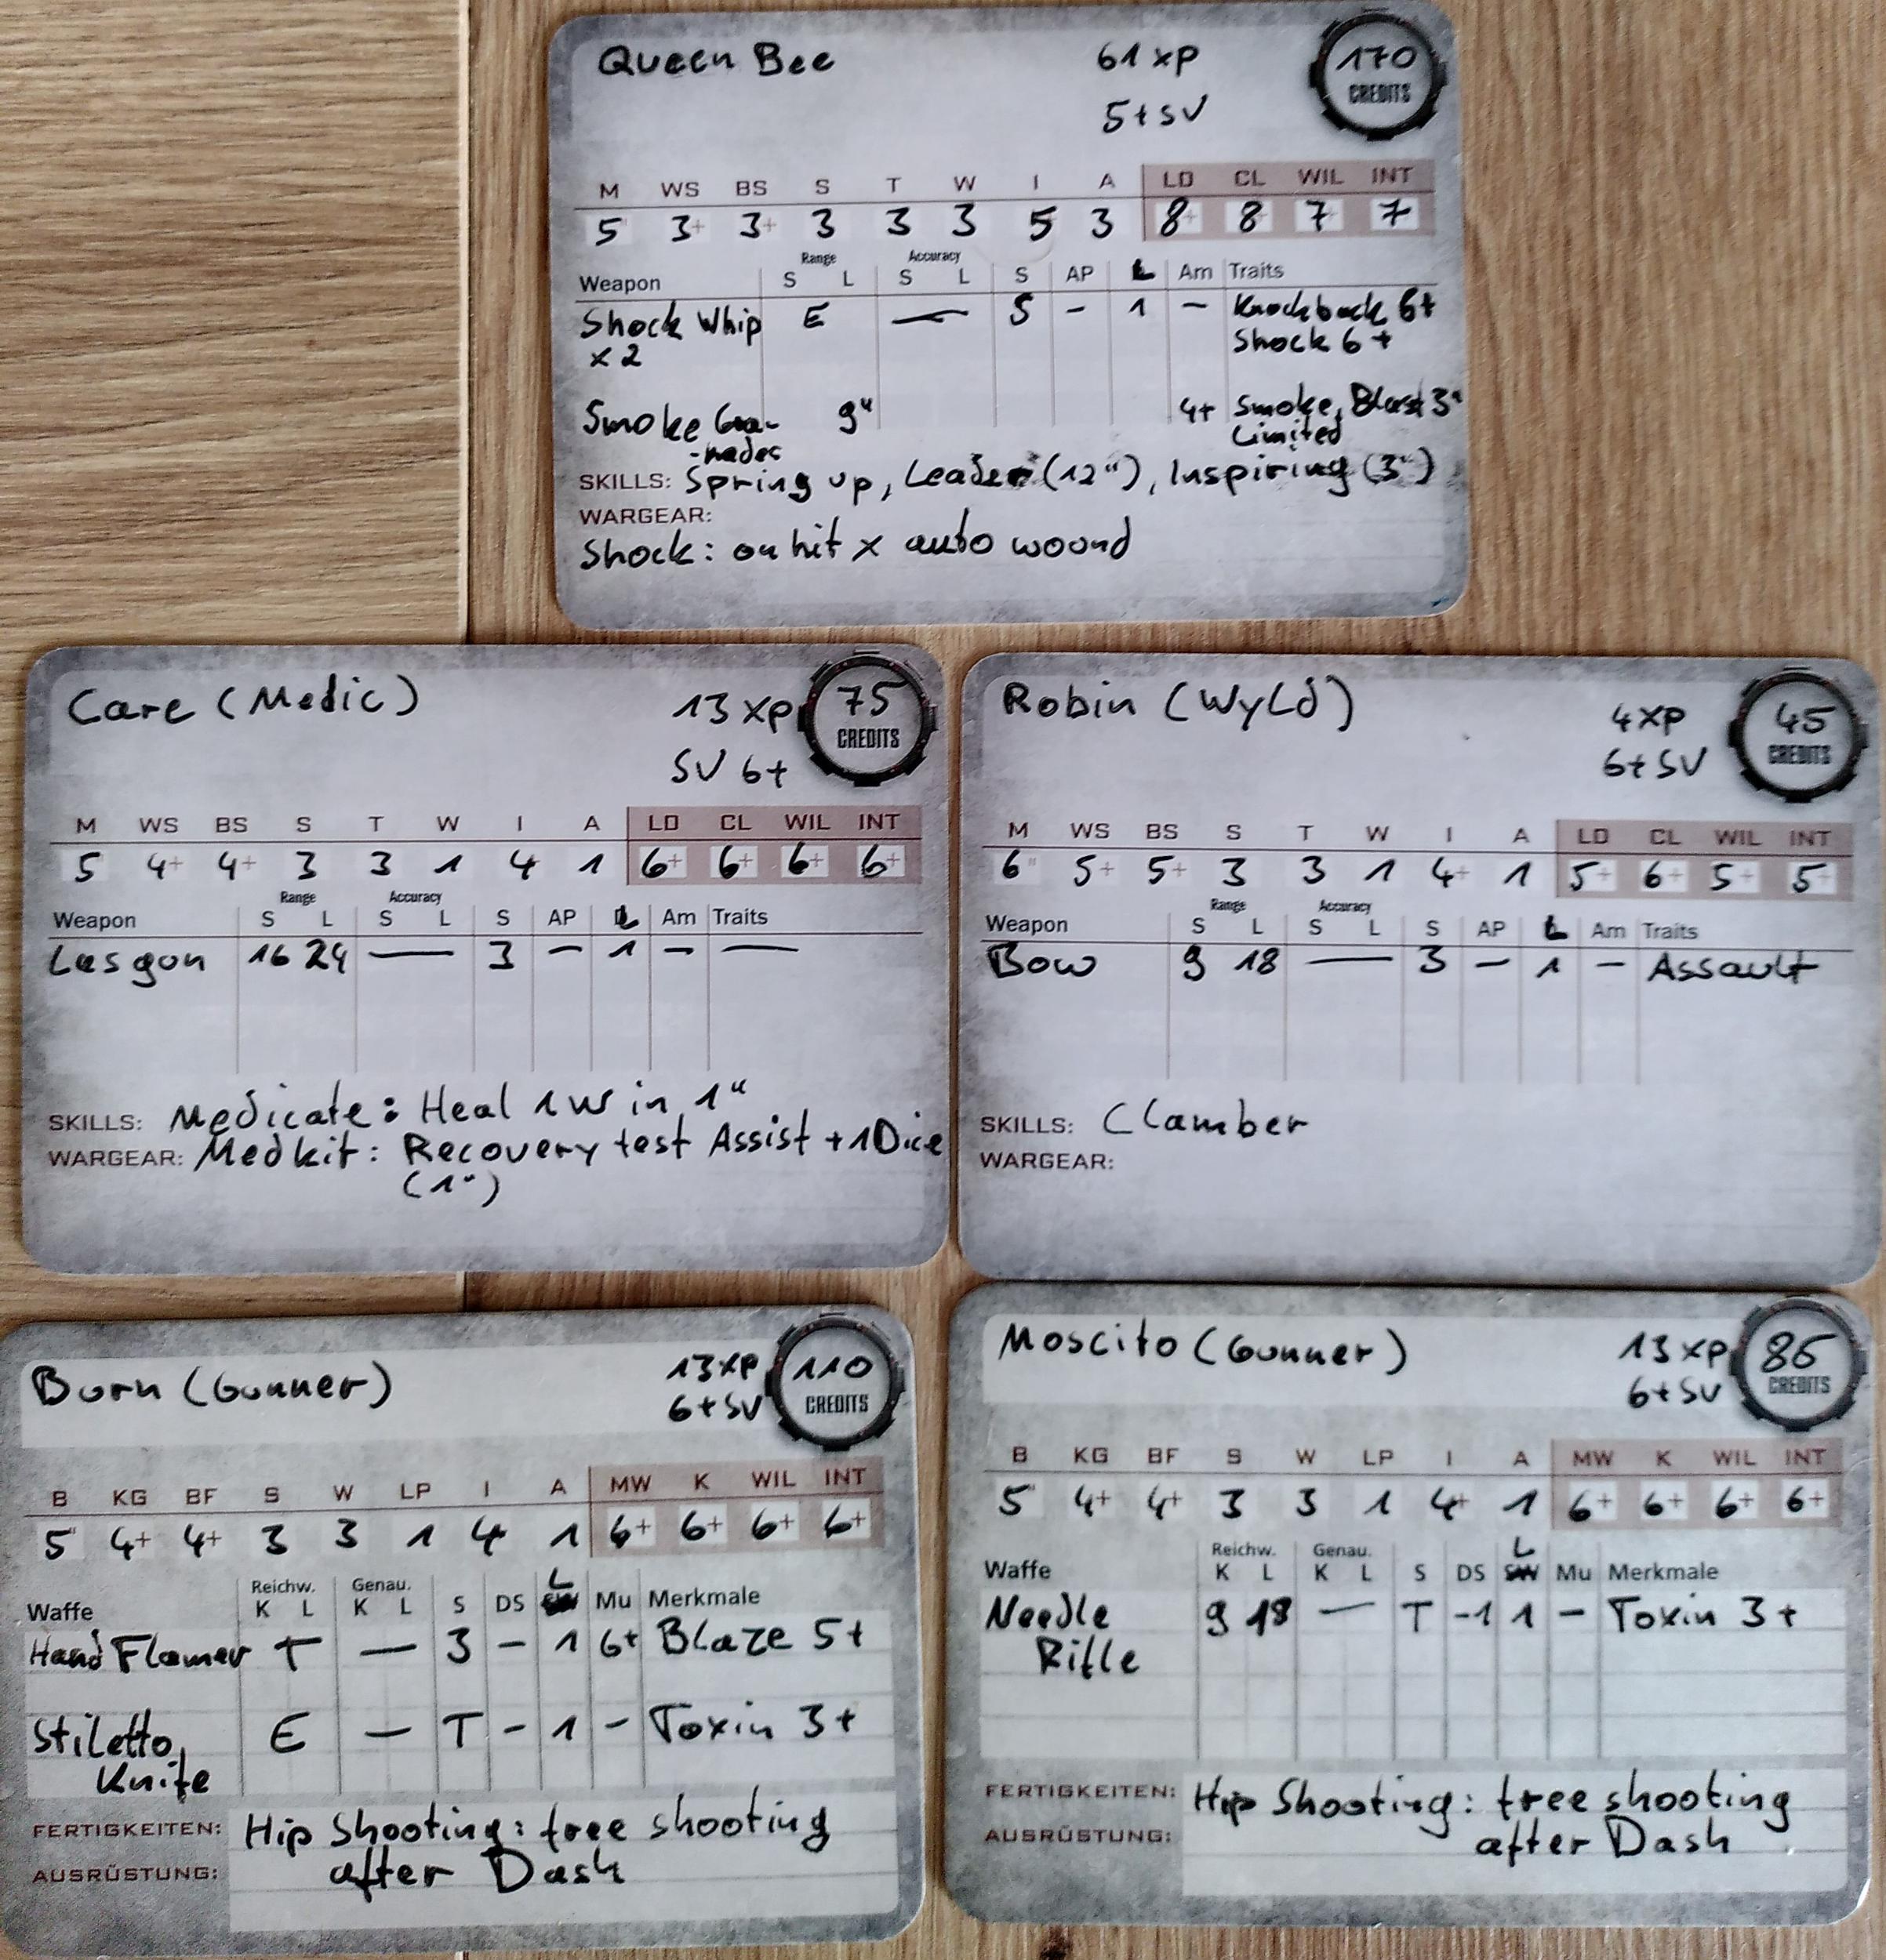 Queen Bee 61 xp 170
5+ SV CREDITS
M WS BS S T W I A LD CL WIL INT
5 3+ 3+ 3 3 3 5 3 8+ 8+ 7+ 7+
Range Accuracy
Weapon S L S L S AP L Am Traits
Shock Whip E — S - 1 - Knockback 6+
x 2 Shock 6+
Smoke Gra- 9" 4+ Smoke, Blast 3"
-nades Limited
SKILLS: Spring up, Leader (12"), Inspiring (3")
WARGEAR:
Shock: on hit x auto wound
Care (Medic) 13 xp 75
SV 6+ CREDITS
M WS BS S T W I A LD CL WIL INT
5 4+ 4+ 3 3 1 4 1 6+ 6+ 6+ 6+
Range Accuracy
Weapon S L S L S AP L Am Traits
Lasgun 16 24 — 3 - 1 - —
SKILLS: Medicate: Heal 1W in 1"
WARGEAR: Medkit: Recovery test Assist +1Dice
(1")
Robin (Wyld) 4 xp 45
6+ SV CREDITS
M WS BS S T W I A LD CL WIL INT
6" 5+ 5+ 3 3 1 4+ 1 5+ 6+ 5+ 5+
Range Accuracy
Weapon S L S L S AP L Am Traits
Bow 9 18 — 3 - 1 - Assault
SKILLS: Clamber
WARGEAR:
Burn (Gunner) 13 xp 110
6+ SV CREDITS
B KG BF S W LP I A MW K WIL INT
5" 4+ 4+ 3 3 1 4 1 6+ 6+ 6+ 6+
Reichw. Genau. L
Waffe K L K L S DS Mu Merkmale
Hand Flamer T — 3 - 1 6+ Blaze 5+
Stiletto E — T - 1 - Toxin 3+
Knife
FERTIGKEITEN: Hip Shooting: free shooting
AUSRÜSTUNG: after Dash
Moscito (Gunner) 13 xp 85
6+ SV CREDITS
B KG BF S W LP I A MW K WIL INT
5" 4+ 4+ 3 3 1 4+ 1 6+ 6+ 6+ 6+
Reichw. Genau. L
Waffe K L K L S DS SW Mu Merkmale
Needle 9 18 — T -1 1 - Toxin 3+
Rifle
FERTIGKEITEN: Hip Shooting: free shooting
AUSRÜSTUNG: after Dash